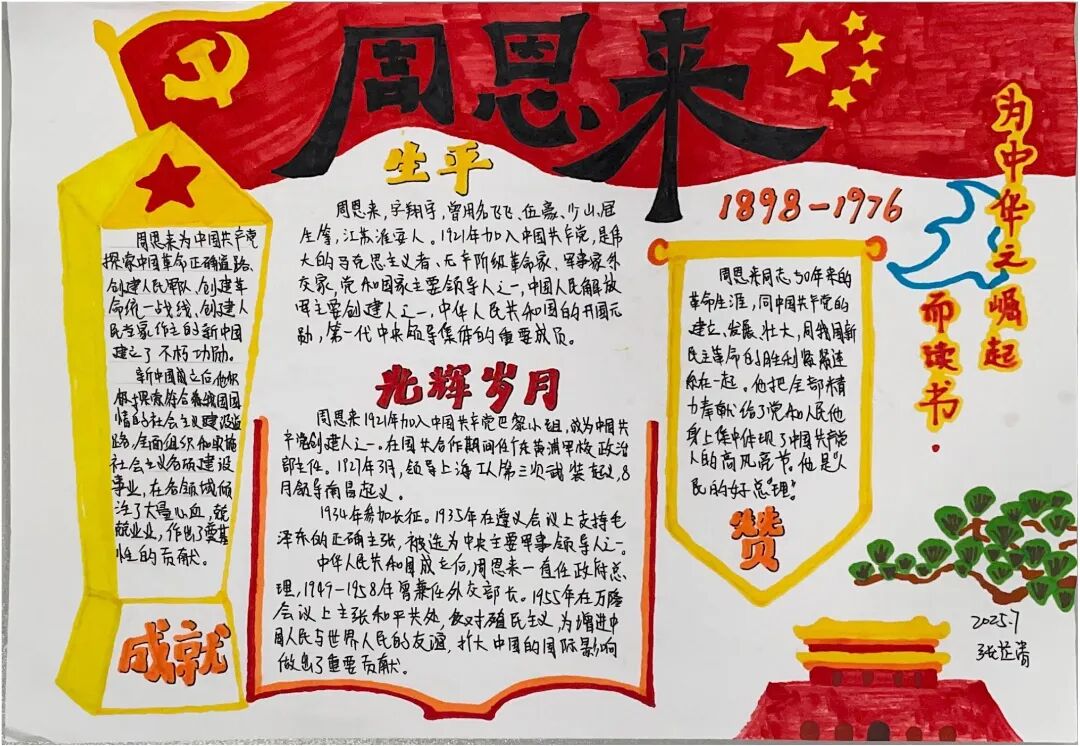 周恩来
1898-1976
为中华之崛起
而读书.
生平
周恩来,字翔宇,曾用名飞飞、伍豪、少山、冠
生等,江苏淮安人。1921年加入中国共产党,是伟
大的马克思主义者、无产阶级革命家、军事家外
交家,党和国家主要领导人之一,中国人民解放
军主要创建人之一,中华人民共和国的开国元
勋,第一代中央领导集体的重要成员。
光辉岁月
周恩来1921年加入中国共产党巴黎小组,成为中国共
产党创建人之一。在国共合作期间任广东黄浦军校政治
部主任。1927年3月,领导上海工人第三次武装起义,8
月领导南昌起义。
1934年参加长征。1935年在遵义会议上支持毛
泽东的正确主张,被选为中央主要军事领导人之一。
中华人民共和国成立后,周恩来一直任政府总
理,1949-1958年曾兼任外交部长。1955年在万隆
会议上主张和平共处,反对殖民主义,为增进中
国人民与世界人民的友谊,扩大中国的国际影响
做出了重要贡献。
周恩来为中国共产党
探索中国革命正确道路、
创建人民军队、创建革
命统一战线、创建人
民当家作主的新中国
建立了不朽功勋。
新中国成立后他积
极探索符合我国国
情的社会主义建设道
路,全面组织和实施
社会主义各项建设
事业,在各领域倾
注了大量心血,兢
兢业业,作出了奠基
性的贡献。
成就
周恩来同志,50年来的
革命生涯,同中国共产党的
建立、发展、壮大,同我国新
民主革命的胜利紧紧连
系在一起。他把全部精
力奉献给了党和人民他
身上集中体现了中国共产党
人的高风亮节。他是"人
民的好总理"。
赞
2025.7